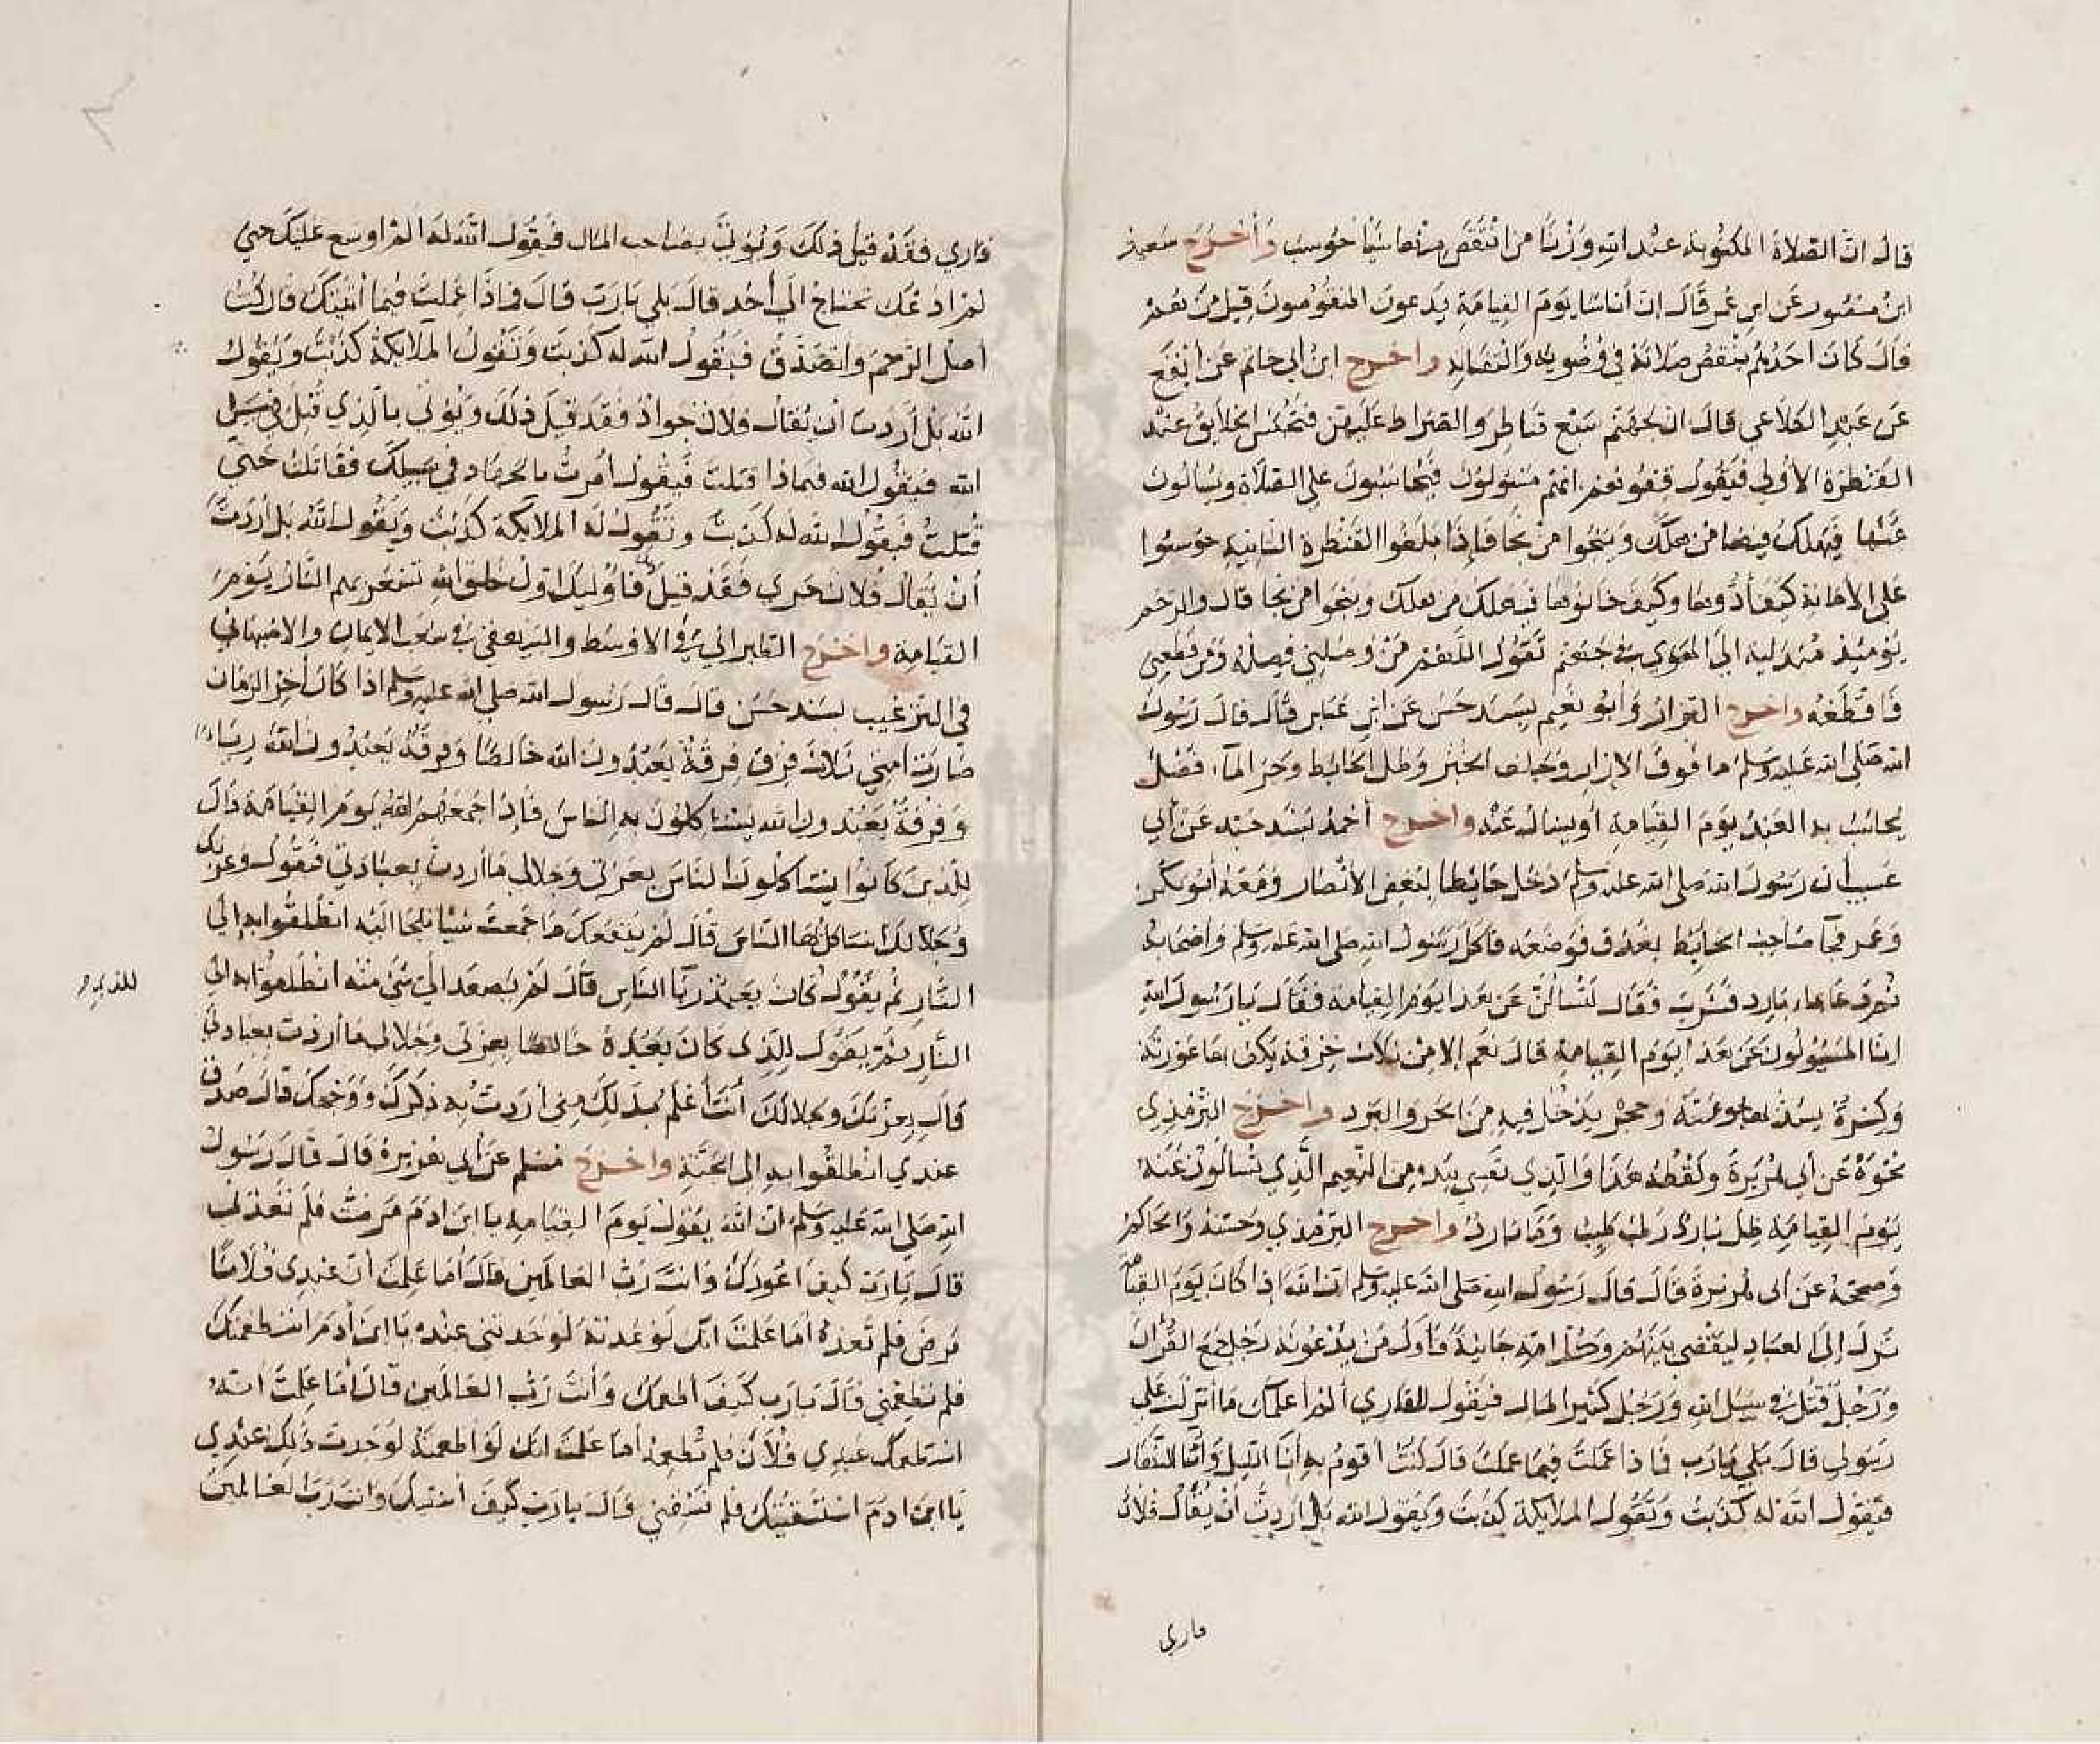 قال ان الصلاة المكتوبة عند الله وزنا من انتقص منها شيا حوسب وأخرج سعيد
ابن منصور عن ابن عمر قال ان أناسا يوم القيامة يدعون المنقوصون قيل من هم
قال كان احدهم ينقص صلاته في وضويه والتفاته واخرج ابن ابي حاتم عن أيفع
عن عبد الكلاعي قال ان لجهنم سبع قناطر والصراط عليهن فتحبس الخلايق عند
القنطرة الأولى فيقول قفوهم انهم مسئولون فيحاسبون على الصلاة ويسالون
عنها فيهلك فيها من هلك وينجوا من نجا فإذا بلغوا القنطرة الثانية حوسبوا
على الأمانة كيف أدوها وكيف خانوها فيهلك من هلك وينجوا من نجا قال والرحم
يوميذ متدلية الى الهوى في جهنم تقول اللهم من وصلني فصله ومن قطعني
فاقطعه واخرج البزار وأبو نعيم بسند حسن عن ابن عباس قال قال رسول
الله صلى الله عليه وسلم ما فوق الازار وجلف الخبز وظل الحايط وجر الماء فضل
يحاسب به العبد يوم القيامة أو يسال عنه واخرج أحمد بسند جيد عن أبي
عسيب أن رسول الله صلى الله عليه وسلم دخل حايطا لبعض الأنصار ومعه أبو بكر
وعمر فجآ صاحب الحايط بعذق فوضعه فاكل رسول الله صلى الله عليه وسلم وأصحابه
ثم دعا بماء بارد فشرب فقال لتسالن عن هذا يوم القيامة فقال يارسول الله
انا المسيولون عن هذا يوم القيامة قال نعم الا من ثلاث خرقة يكف بها عورته
وكسرة يسد بها جوعته وجحر يدخل فيه من الحر والبرد واخرج الترمذي
نحوه عن أبي هريرة ولفظه هذا والذي نفسي بيده من النعيم الذي تسالون عنه
يوم القيامة ظل بارد رطب طيب وماء بارد واخرج الترمذي وحسنه والحاكم
وصححه عن ابى هريرة قال قال رسول الله صلى الله عليه وسلم ان الله إذا كان يوم القيامة
نزل إلى العباد ليقضي بينهم وكل امة جاثية فأول من يدعونه رجل جمع القرآن
ورجل قتل في سبيل الله ورجل كثير المال فيقول للقاري ألم أعلمك ما أنزلت على
رسولى قال بلى يارب قال فماذا عملت فيما علمت قال كنت أقوم به أنا الليل وأنا النهار
فيقول الله له كذبت وتقول الملايكة كذبت ويقول الله بل اردت أن يقال فلان
قاري
قاري فقد قيل ذلك ويوتى بصاحب المال فيقول الله له ألم اوسع عليك حتى
لم ادعك تحتاج الى أحد قال بلى يارب قال فماذا عملت فيما آتيتك قال كنت
اصل الرحم واتصدق فيقول الله له كذبت وتقول الملايكة كذبت ويقول
الله بل أردت ان يقال فلان جواد فقد قيل ذلك ويوتى بالذي قتل في سبيل
الله فيقول الله فيماذا قتلت فيقول امرت بالجهاد في سبيلك فقاتلت حتى
قتلت فيقول الله له كذبت وتقول له الملايكة كذبت ويقول الله بل اردت
أن يقال فلان جري فقد قيل فاوليك اول خلق الله تسعر بهم النار يوم
القيامة واخرج الطبراني في الاوسط والبيهقي في شعب الايمان والاصبهاني
في الترغيب بسند حسن قال قال رسول الله صلى الله عليه وسلم اذا كان آخر الزمان
صارت امتي ثلاث فرق فرقة يعبدون الله خالصا وفرقة يعبدون الله رياء
وفرقة يعبدون الله يستاكلون به الناس فإذا جمعهم الله يوم القيامة قال
للذين كانوا يستاكلون الناس بعزتي وجلالى ما أردت بعبادتي فيقول وعزتك
وجلالك استاكل بها الناس قال لم ينفعك ما جمعت شيا تلجا اليه انطلقوا به إلى
النار ثم يقول
النار ثم يقول للذى كان يعبده خالصا بعزتى وجلالى ما أردت بعبادتى
قال بعزتك وجلالك أنت أعلم بذلك منى أردت به ذكرك ووجهك قال صدق
عبدي انطلقوا به الى الجنة واخرج مسلم عن أبي هريرة قال قال رسول
الله صلى الله عليه وسلم ان الله يقول يوم القيامة يا ابن ادم مرضت فلم تعدني
قال يارب كيف اعودك وانت رب العالمين قال أما علمت أن عبدى فلانا
مرض فلم تعده أما علمت انك لو عدته لوجدتني عنده يا ابن أدم استطعمتك
فلم تطعمني قال يارب كيف اطعمك وأنت رب العالمين قال أما علمت انه
استطعمك عبدى فلان فلم تطعمه أما علمت انك لو اطعمته لوجدت ذلك عندي
يا ابن ادم استسقيتك فلم تسقني قال يارب كيف اسقيك وانت رب العالمين